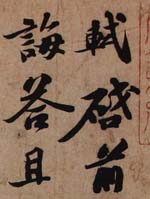 軾啓前
誨荅且